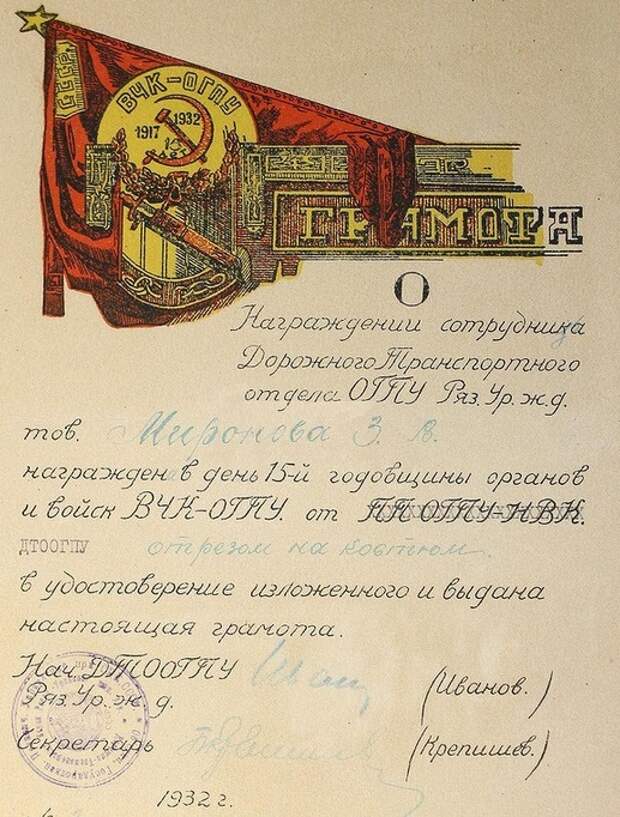 СССР
ВЧК-ОГПУ
1917 1932
15
ЛЕТ
ГРАМОТА
О
Награждении сотрудница
Дорожного Транспортного
отдела ОГПУ Ряз. Ур. ж.д.
тов. Миронова З. В.
награждена в день 15-й годовщины органов
и войск ВЧК-ОГПУ. от ПП ОГПУ-НВК.
ДТООГПУ отрезом на костюм.
в удостоверение изложенного и выдана
настоящая грамота.
Нач. ДТООГПУ
Ряз. Ур. ж д. (Иванов.)
Секретарь (Крепишев.)
1932 г.